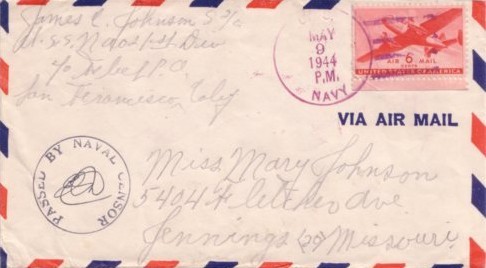 James C. Johnson S 2/c
U.S.S. Naos 1st Div
c/o Fleet P.O.
San Francisco, Calif
MAY
9
1944
P.M.
NAVY
AIR 6 MAIL
CENTS
UNITED STATES OF AMERICA
VIA AIR MAIL
PASSED BY NAVAL CENSOR
Miss Mary Johnson
5404 Fletcher Ave
Jennings (20) Missouri